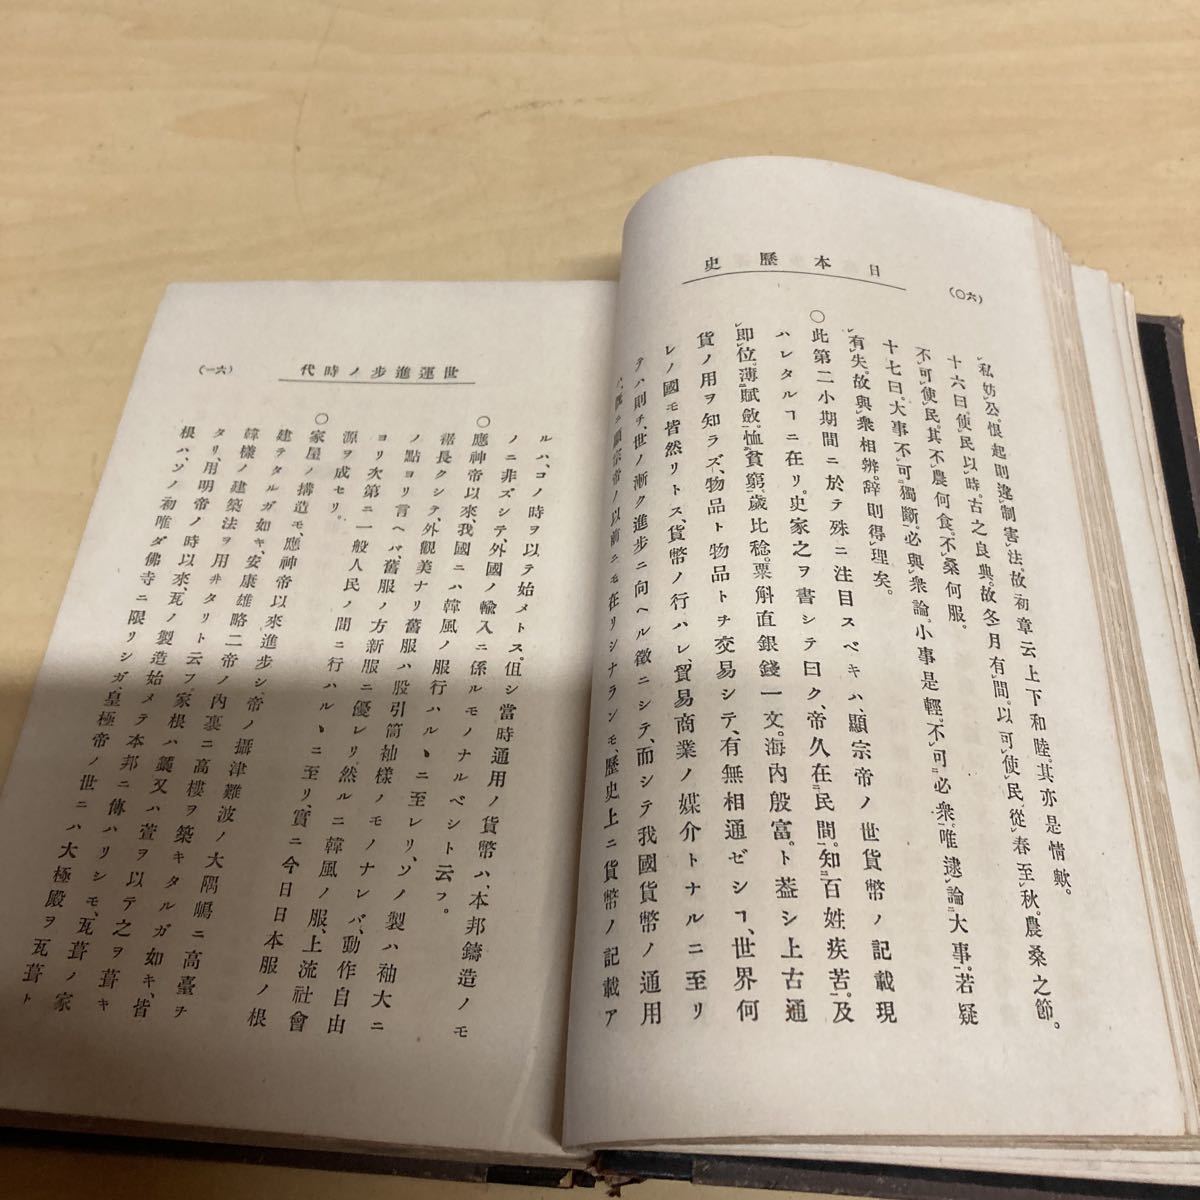 日本歴史
(六〇)
私妨公。恨起則違制害法。故初章云上下和睦。其亦是情歟。
十六曰。使民以時。古之良典。故冬月有間。以可使民。從春至秋。農桑之節。
不可使民。其不農何食。不桑何服。
十七曰。大事不可獨斷。必與衆論。小事是輕。不可必衆。唯逮論大事。若疑
有失。故與衆相辨。辭則得理矣。
○此第二小期間ニ於テ殊ニ注目スベキハ、顯宗帝ノ世貨幣ノ記載現
ハレタルヿニ在リ。史家之ヲ書シテ曰ク、帝久在民間。知百姓疾苦。及
即位。薄賦斂。恤貧窮。歲比稔。粟斛直銀錢一文。海內殷富。ト葢シ上古通
貨ノ用ヲ知ラズ、物品ト物品トチ交易シテ、有無相通ゼシヿ、世界何
レノ國モ皆然リトス、貨幣ノ行ハレ、貿易商業ノ媒介トナルニ至リ
テハ則チ、世ノ漸ク進步ニ向ヘル徵ニシテ、而シテ我國貨幣ノ通用
顯宗帝ノ以前ニモ在リシナランモ、歷史上ニ貨幣ノ記載ア
世運進步ノ時代
(六一)
ルハ、コノ時ヲ以テ始メトス。但シ當時通用ノ貨幣ハ、本邦鑄造ノモ
ノニ非ズシテ、外國ノ輸入ニ係ルモノナルベシト云フ。
○應神帝以來、我國ニハ韓風ノ服行ハルヽニ至レリ、ソノ製ハ袖大ニ
裾長クシテ、外觀美ナリ舊服ハ股引筒袖樣ノモノナレバ、動作自由
ノ點ヨリ言ヘバ、舊服ノ方新服ニ優レリ然ルニ韓風ノ服、上流社會
ヨリ次第ニ一般人民ノ間ニ行ハルヽニ至リ、實ニ今日日本服ノ根
源ヲ成セリ。
○家屋ノ搆造モ、應神帝以來進步シ、帝ノ攝津難波ノ大隅嶋ニ高臺チ
建テタルガ如キ、安康雄略二帝ノ內裏ニ高樓ヲ築キタルガ如キ、皆
韓樣ノ建築法ヲ用ヰタリト云フ。家根ハ藁又ハ萱ヲ以テ之ヲ葺キ
タリ、用明帝ノ時以來、瓦ノ製造始メテ本邦ニ傳ハリシモ、瓦葺ノ家
根ハ、ソノ初唯ダ佛寺ニ限リシガ、皇極帝ノ世ニハ大極殿ヲ瓦葺ト